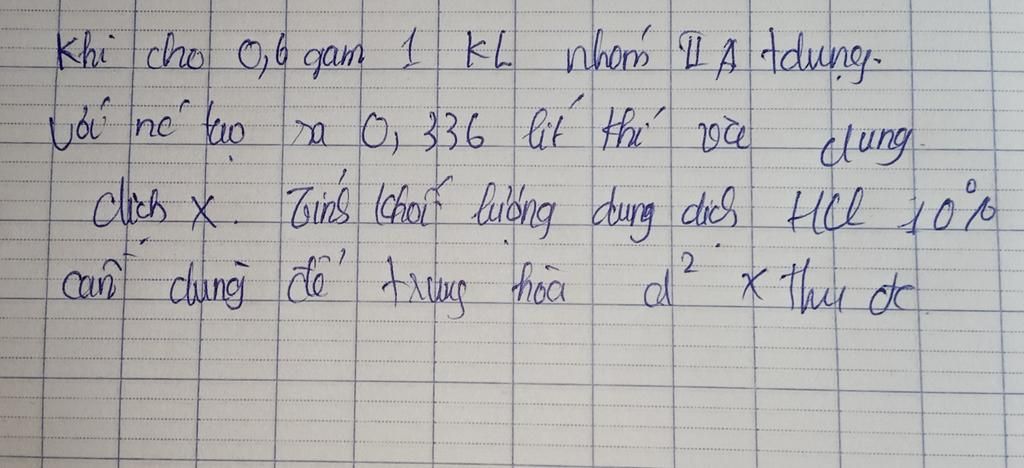 Khi cho 0,6 gam 1 KL nhóm II A tdung.
với nc tạo ra 0,336 lít khí và dung
dịch X. Tính khối lượng dung dịch HCl 10%
cần dùng để trung hòa d² X thu đc